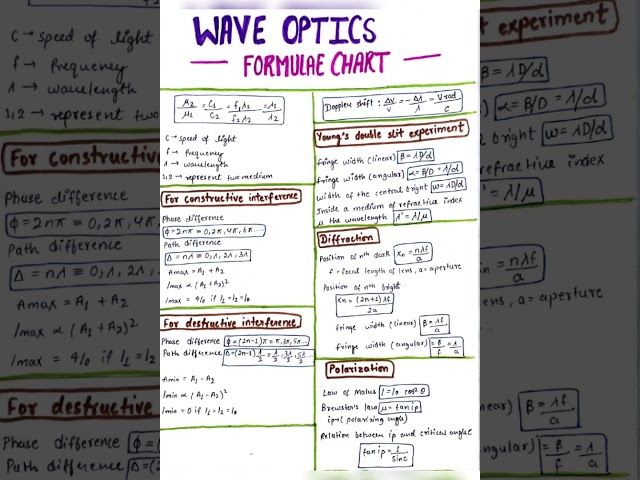 WAVE OPTICS
FORMULAE CHART
μ2/μ1 = C1/C2 = f1λ1/f2λ2 = λ1/λ2
C → speed of light
f → frequency
λ → wavelength
1,2 → represent two medium
For constructive interference
Phase difference
ϕ = 2nπ = 0, 2π, 4π, 6π....
Path difference
Δ = nλ = 0, λ, 2λ, 3λ
Amax = A1 + A2
Imax ∝ (A1 + A2)²
Imax = 4I0 if I1 = I2 = I0
For destructive interference
Phase difference ϕ = (2n-1)π = π, 3π, 5π...
Path difference Δ = (2n-1)λ/2 = λ/2, 3λ/2, 5λ/2
Amin = A1 - A2
Imin ∝ (A1 - A2)²
Imin = 0 if I1 = I2 = I0
Doppler shift : Δν/ν = -Δλ/λ = Vrad/c
Young's double slit experiment
Fringe width (linear) β = λD/d
Fringe width (angular) α = β/D = λ/d
width of the central bright w = λD/d
Inside a medium of refractive index
μ the wavelength λ' = λ/μ
Diffraction
Position of nth dark xn = nλf/a
f = focal length of lens, a = aperture
Position of nth bright
xn = (2n+1)λf/2a
fringe width (linear) β = λf/a
fringe width (angular) = β/f = λ/a
Polarization
Law of Malus I = I0 cos² θ
Brewster's law μ = tan ip
ip → (polarizing angle)
Relation between ip and critical angle C
tan ip = 1/sin c